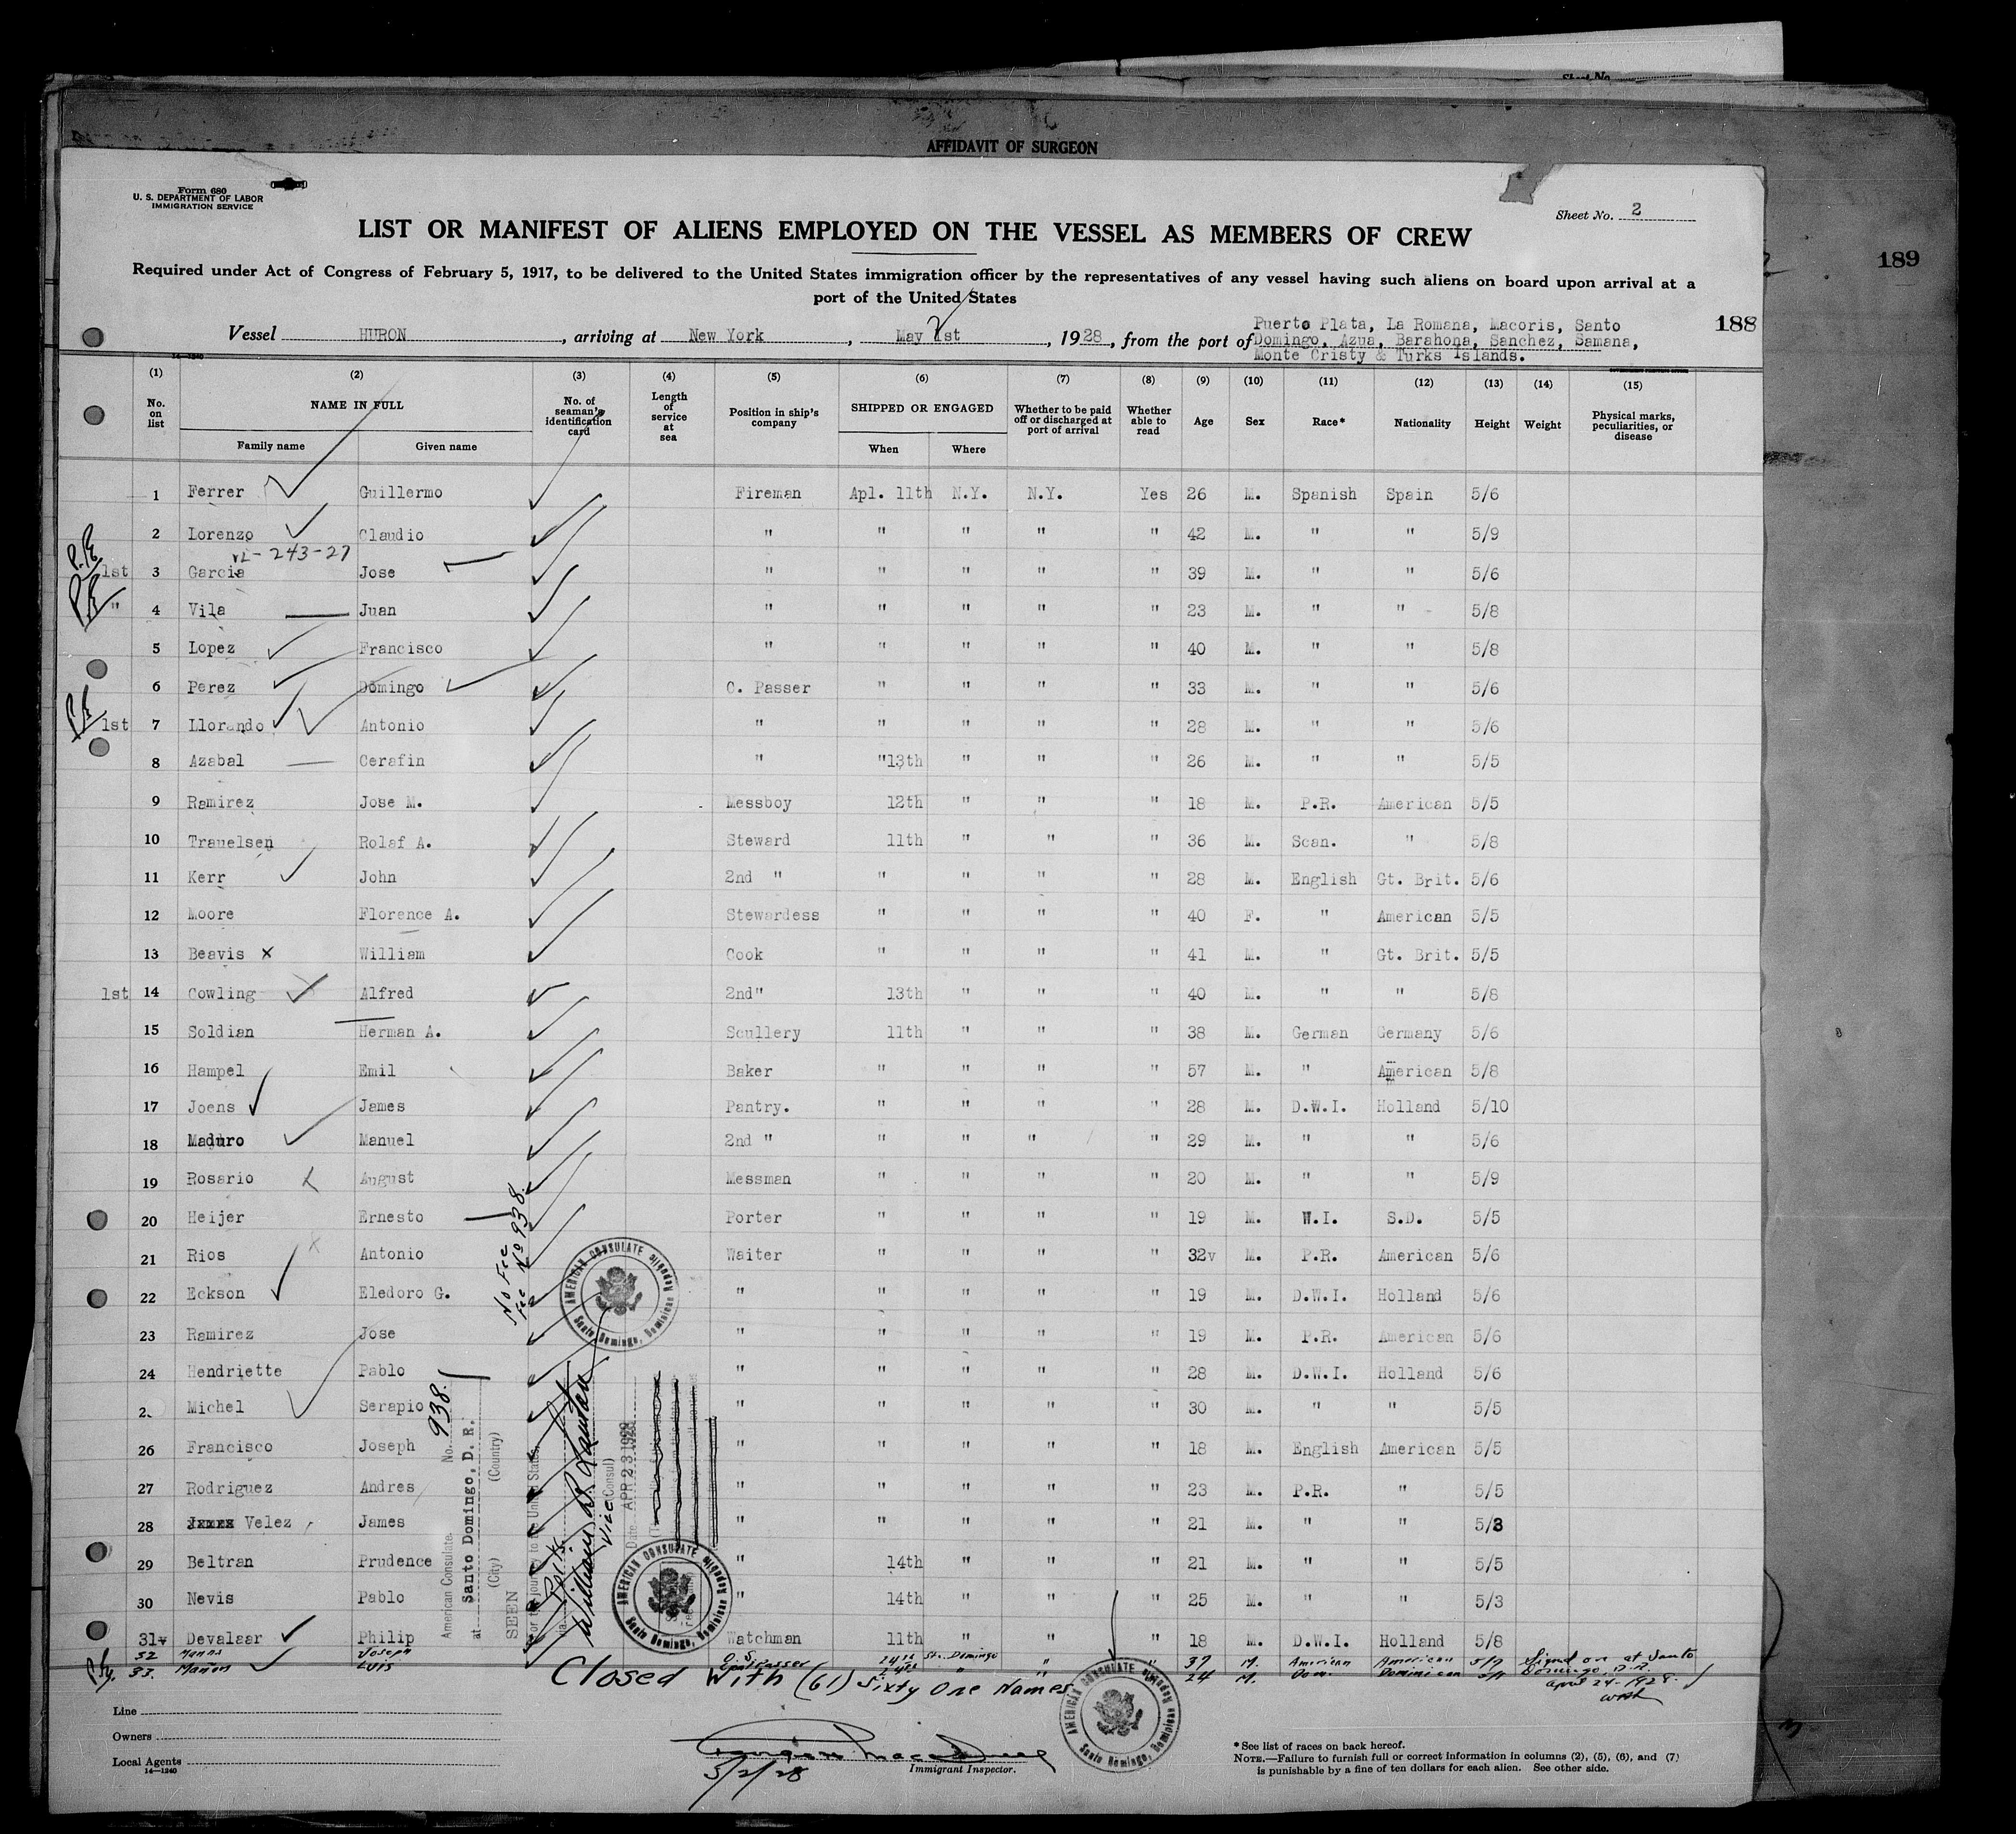 Sheet No.
AFFIDAVIT OF SURGEON
Form 680
U. S. DEPARTMENT OF LABOR
IMMIGRATION SERVICE
Sheet No. 2
LIST OR MANIFEST OF ALIENS EMPLOYED ON THE VESSEL AS MEMBERS OF CREW
189
Required under Act of Congress of February 5, 1917, to be delivered to the United States immigration officer by the representatives of any vessel having such aliens on board upon arrival at a
port of the United States
188
Vessel HURON, arriving at New York, May 1st, 1928, from the port of Puerto Plata, La Romana, Macoris, Santo
Domingo, Azua, Barahona, Sanchez, Samana,
Monte Cristy & Turks Islands.
14-1240
(1) (2) (3) (4) (5) (6) (7) (8) (9) (10) (11) (12) (13) (14) (15)
No. on list NAME IN FULL No. of seaman's identification card Length of service at sea Position in ship's company SHIPPED OR ENGAGED Whether to be paid off or discharged at port of arrival Whether able to read Age Sex Race* Nationality Height Weight Physical marks, peculiarities, or disease
Family name Given name When Where
1 Ferrer Guillermo Fireman Apl. 11th N.Y. N.Y. Yes 26 M. Spanish Spain 5/6
2 Lorenzo Claudio " " " " " 42 M. " " 5/9
243-27
1st 3 Garcia Jose " " " " " 39 M. " " 5/6
" 4 Vila Juan " " " " " 23 M. " " 5/8
5 Lopez Francisco " " " " " 40 M. " " 5/8
6 Perez Domingo C. Passer " " " " 33 M. " " 5/6
1st 7 Llorando Antonio " " " " " 28 M. " " 5/6
8 Azabal Cerafin " "13th " " " 26 M. " " 5/5
9 Ramirez Jose M. Messboy 12th " " " 18 M. P.R. American 5/5
10 Trauelsen Rolaf A. Steward 11th " " " 36 M. Scan. " 5/8
11 Kerr John 2nd " " " " " 28 M. English Gt. Brit. 5/6
12 Moore Florence A. Stewardess " " " " 40 F. " American 5/5
13 Beavis x William Cook " " " " 41 M. " Gt. Brit. 5/5
1st 14 Cowling Alfred 2nd" 13th " " " 40 M. " " 5/8
15 Soldian Herman A. Scullery 11th " " " 38 M. German Germany 5/6
16 Hampel Emil Baker " " " " 57 M. " American 5/8
17 Joens James Pantry. " " " " 28 M. D.W.I. Holland 5/10
18 Maduro Manuel 2nd " " " " " 29 M. " " 5/6
19 Rosario x August Messman " " " " 20 M. " " 5/9
20 Heijer Ernesto Porter " " " " 19 M. W.I. S.D. 5/5
21 Rios x Antonio Waiter " " " " 32v M. P.R. American 5/6
22 Eckson Eledoro G. " " " " " 19 M. D.W.I. Holland 5/6
23 Ramirez Jose " " " " " 19 M. P.R. American 5/6
24 Hendriette Pablo " " " " " 28 M. D.W.I. Holland 5/6
2 Michel Serapio " " " " " 30 M. " " 5/5
26 Francisco Joseph " " " " " 18 M. English American 5/5
27 Rodriguez Andres " " " " " 23 M. P.R. " 5/5
28 Velez James " " " " " 21 M. " " 5/3
29 Beltran Prudence " 14th " " " 21 M. " " 5/5
30 Nevis Pablo " 14th " " " 25 M. " " 5/3
31v Devalaar Philip Watchman 11th " " " 18 M. D.W.I. Holland 5/8
32 Manna Joseph O.S. 24th Sto. Domingo " 37 M. American American 5/7 Signed on at Santo
33. Mañon Luis " " 24 M. Dom. Dominican Domingo, D.R.
April 24-1928.
No Fee
Fee No 938.
American Consulate. No. 938.
at Santo Domingo, D. R.
(City) (Country)
SEEN
For the journey to the United States.
Via Ports.
William B. Lawton
Vice (Consul)
Date APR 23 1928
AMERICAN CONSULATE Santo Domingo, Dominican Republic
AMERICAN CONSULATE Santo Domingo, Dominican Republic
AMERICAN CONSULATE Santo Domingo, Dominican Republic
Closed With (61) Sixty One Names
Line
Owners
Local Agents
14-1240
5/2/28
Immigrant Inspector.
*See list of races on back hereof.
NOTE.—Failure to furnish full or correct information in columns (2), (5), (6), and (7)
is punishable by a fine of ten dollars for each alien. See other side.